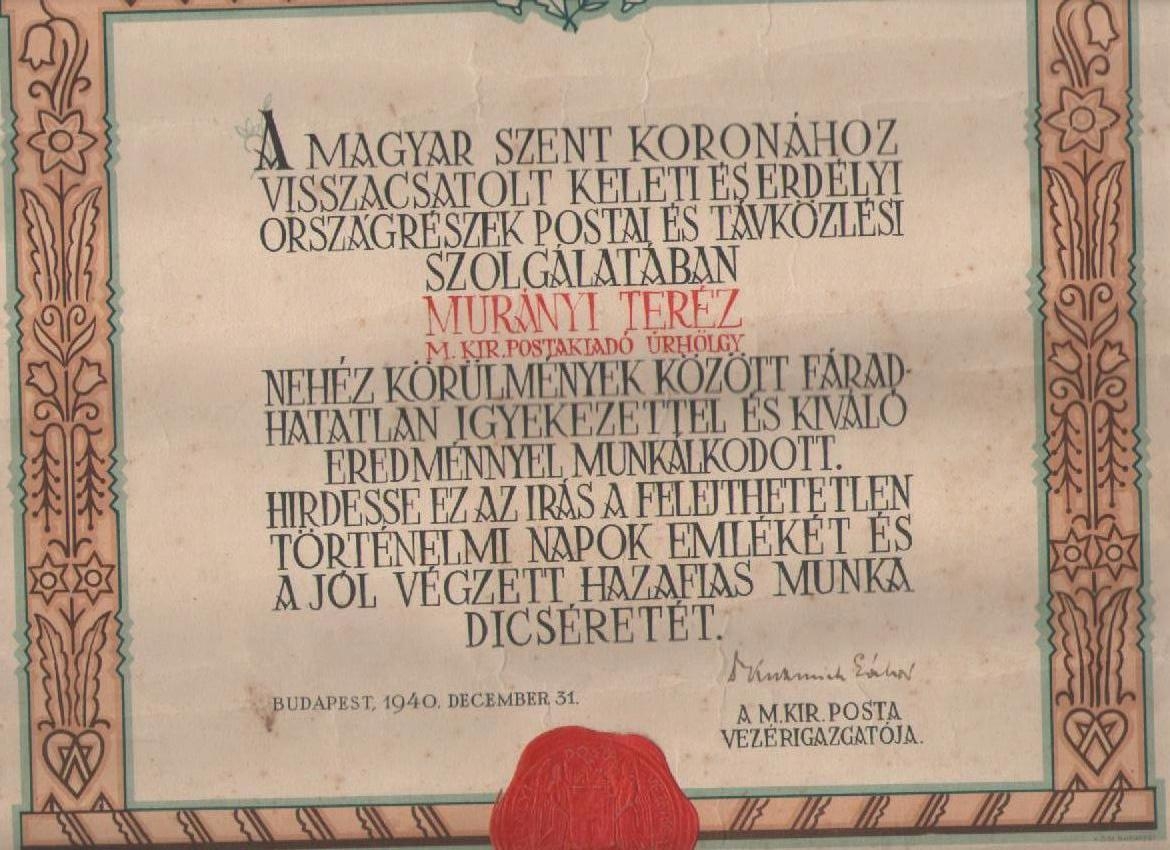 A MAGYAR SZENT KORONÁHOZ
VISSZACSATOLT KELETI ÉS ERDÉLYI
ORSZÁGRÉSZEK POSTAI ÉS TÁVKÖZLÉSI
SZOLGÁLATÁBAN
MURÁNYI TERÉZ
M. KIR. POSTAKIADÓ ÚRHÖLGY
NEHÉZ KÖRÜLMÉNYEK KÖZÖTT FÁRAD-
HATATLAN IGYEKEZETTEL ÉS KIVÁLÓ
EREDMÉNNYEL MUNKÁLKODOTT.
HIRDESSE EZ AZ IRÁS A FELEJTHETETLEN
TÖRTÉNELMI NAPOK EMLÉKÉT ÉS
A JÓL VÉGZETT HAZAFIAS MUNKA
DICSÉRETÉT.
BUDAPEST, 1940. DECEMBER 31.
A M. KIR. POSTA
VEZÉRIGAZGATÓJA.